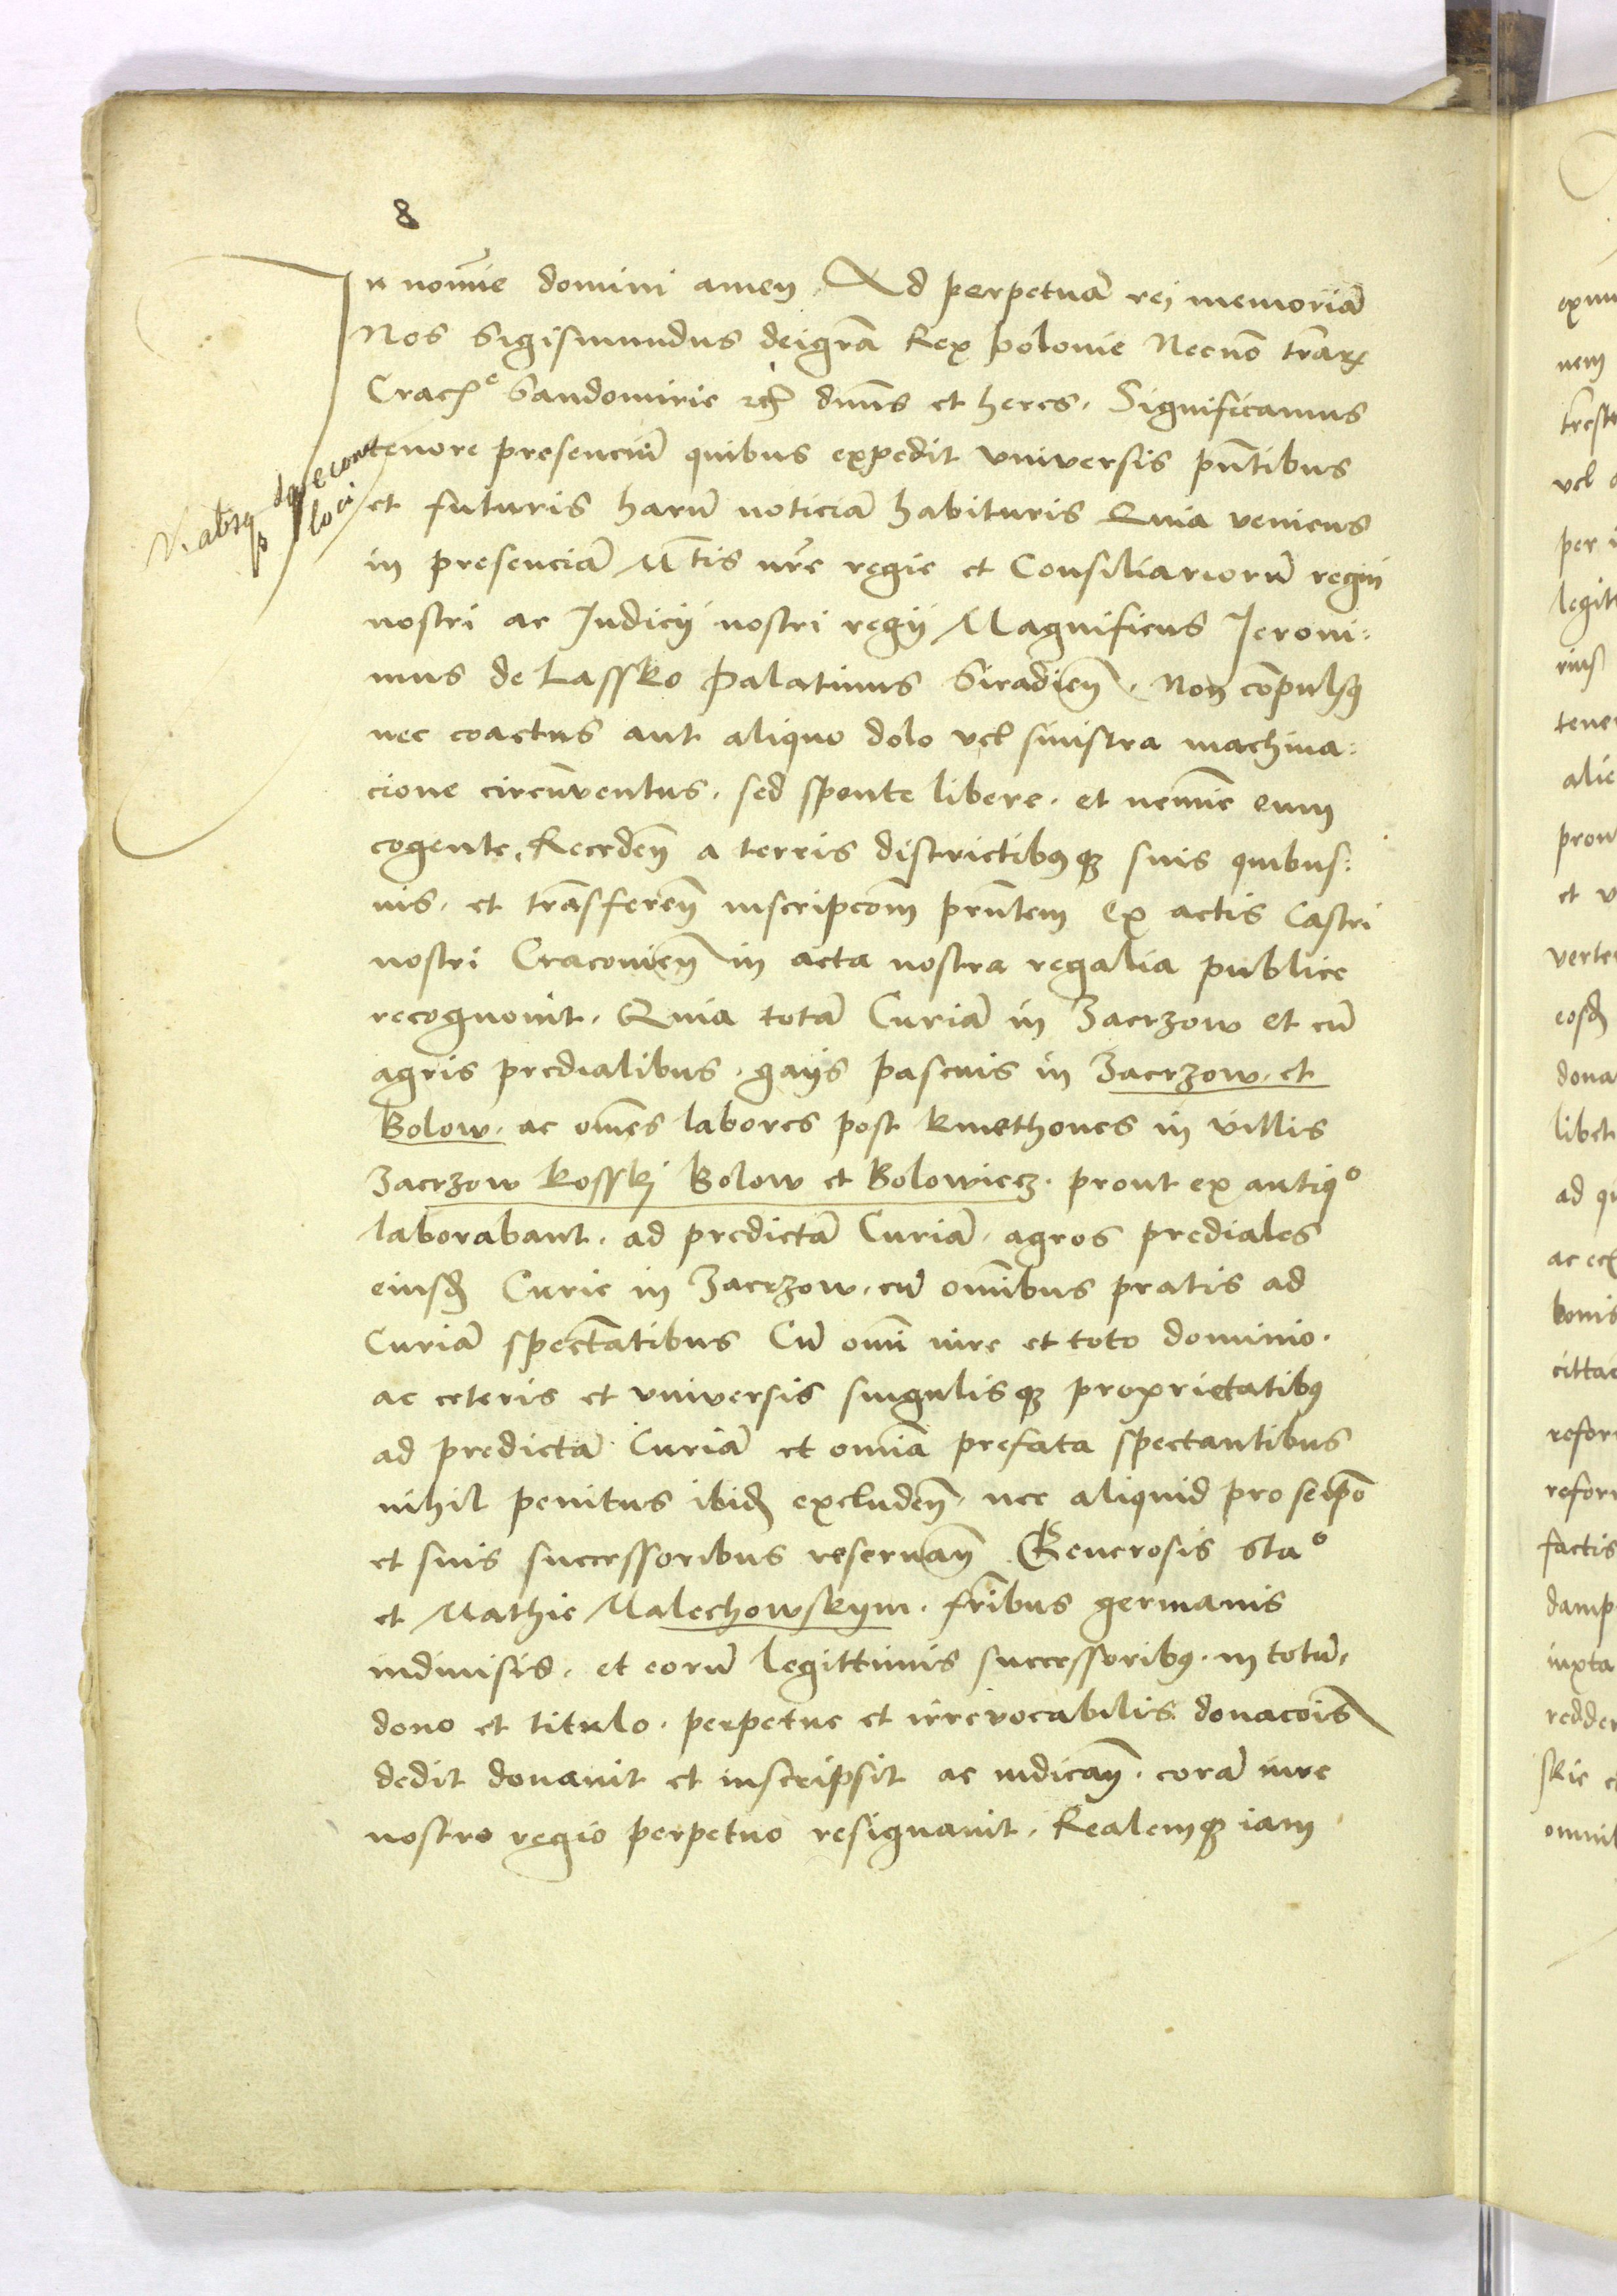 8
In nomĩe domini amen. Ad perpetuã rei memoriã
Nos Sigismundus deigrã Rex polonie Necnõ trãrꝝ
Cracꝭͤ Sandomirie ꝛcͣ dnũs et heres. Significamus
tenore presenciũ quibus expedit vniversis pñtibus
et futuris harũ noticiã habituris Quia veniens
in presenciã Mt̃is nrẽ regie et Consiliariorũ regni
nostri ac Judicij nostri regij Magnificus Jeroni:
mus de Lassko Palatinus Siradieñ. Non cõpulsꝯ
nec coactus aut aliquo dolo vel sinistra machina:
cione circũventus. sed sponte libere. et nemĩe eum
cogente. Recedeñ a terris districtibꝯqꝫ suis quibus:
uis. et trãnsfereñ inscripcõm prñtem ex actis Castri
nostri Cracovieñ in acta nostra regalia publice
recognouit. Quia totã Curiã in Zacrzow et cũ
agris predialibus. gaijs pascuis in Zacrzow. et
Bolow. ac om̃es labores post kmethones in villis
Zacrzow kosski Bolow et Bolowiecz. prout ex antiqͦ
laborabant. ad predictã Curiã. agros prediales
eiusd̃ Curie in Zacrzow. cũ om̃ibus pratis ad
Curiã spectãtibus Cũ om̃i iure et toto dominio.
ac ceteris et vniversis singulisqꝫ proprietatibꝯ
ad predictã Curiã et om̃ia prefata spectantibus
nihil penitus ibid̃ excludeñ. nec aliquid pro seip̃o
et suis successoribus reseruañ Generosis Staͦ
et Mathie Malechowskym. fr̃ibus germanis
indiuisis. et eorũ legittimis successoribꝯ. in totũ.
dono et titulo. perpetue et irrevocabilis donacõis
dedit donauit et inscripsit ac iudicañ. corã iure
nostro regio perpetuo resignauit. Realemqꝫ iam